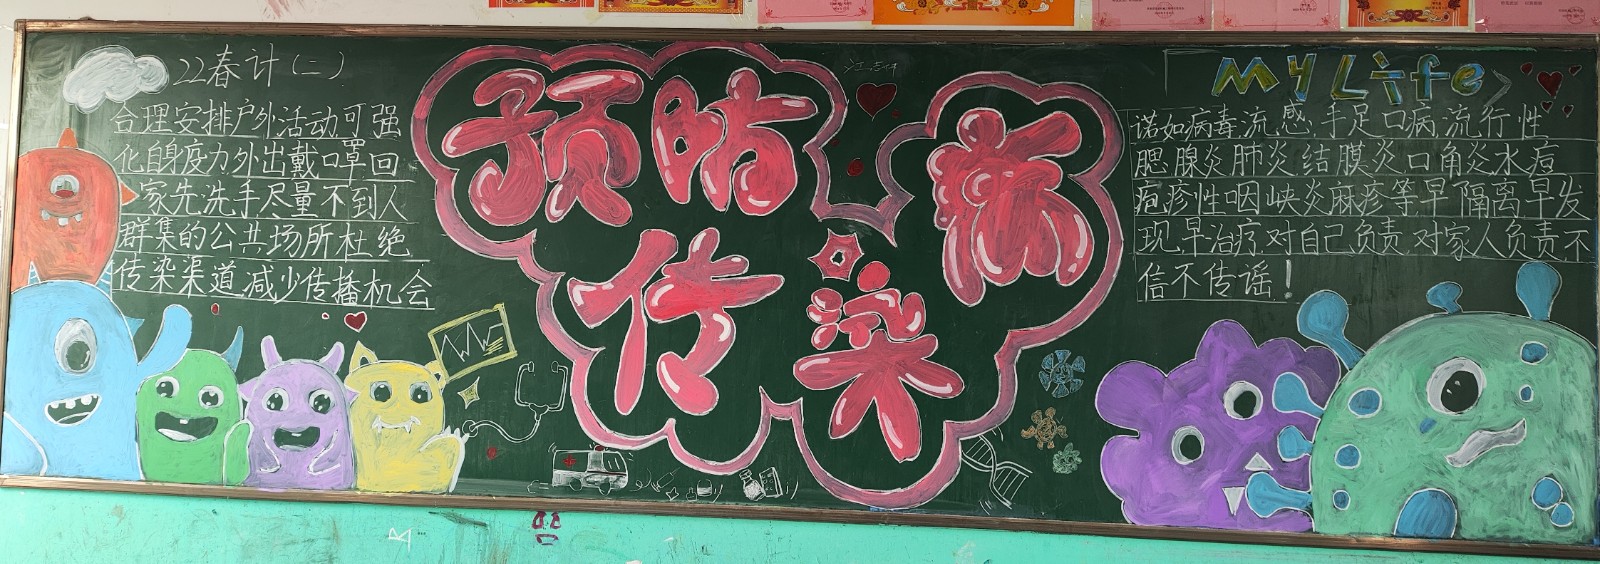 22春计(二)
合理安排户外活动可强
化自身疫力外出戴口罩回
家先洗手尽量不到人
群集的公共场所杜绝
传染渠道减少传播机会
预防
传染
病
MY Life
诺如病毒流感手足口病流行性
腮腺炎肺炎结膜炎口角炎水痘
疱疹性咽峡炎麻疹等早隔离早发
现早治疗对自己负责对家人负责不
信不传谣!